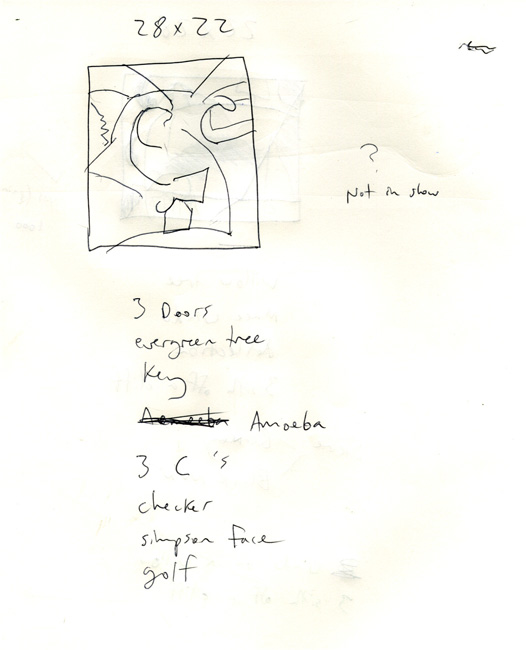 28 x 22
?
Not in show
3 Doors
evergreen tree
Key
Aemeeba Amoeba
3 C's
checker
simpson face
golf